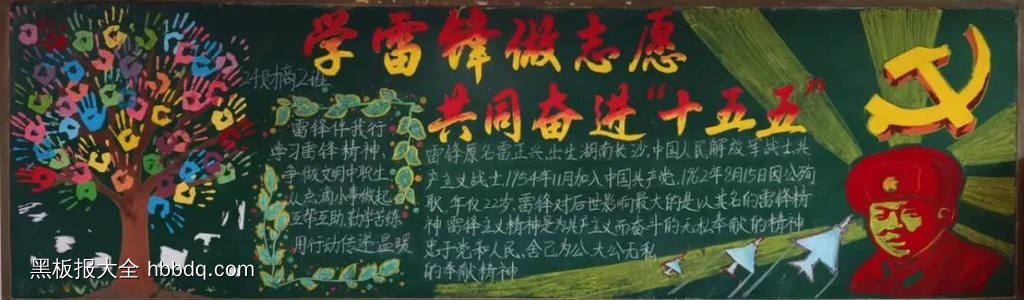 学雷锋做志愿
共同奋进“十五五”
24财高2班
雷锋伴我行
学习雷锋精神、
争做文明中职生
从点滴小事做起
互帮互助勤学苦练
用行动传递温暖
雷锋原名雷正兴,出生湖南长沙,中国人民解放军战士共
产主义战士,1954年11月加入中国共产党.1962年8月15日因公殉
职,年仅22岁.雷锋对后世影响最大的是以其名的雷锋精
神雷锋主义精神是为共产主义而奋斗的无私奉献的精神
忠于党和人民、舍己为公、大公无私
的奉献精神
黑板报大全 hbbdq.com